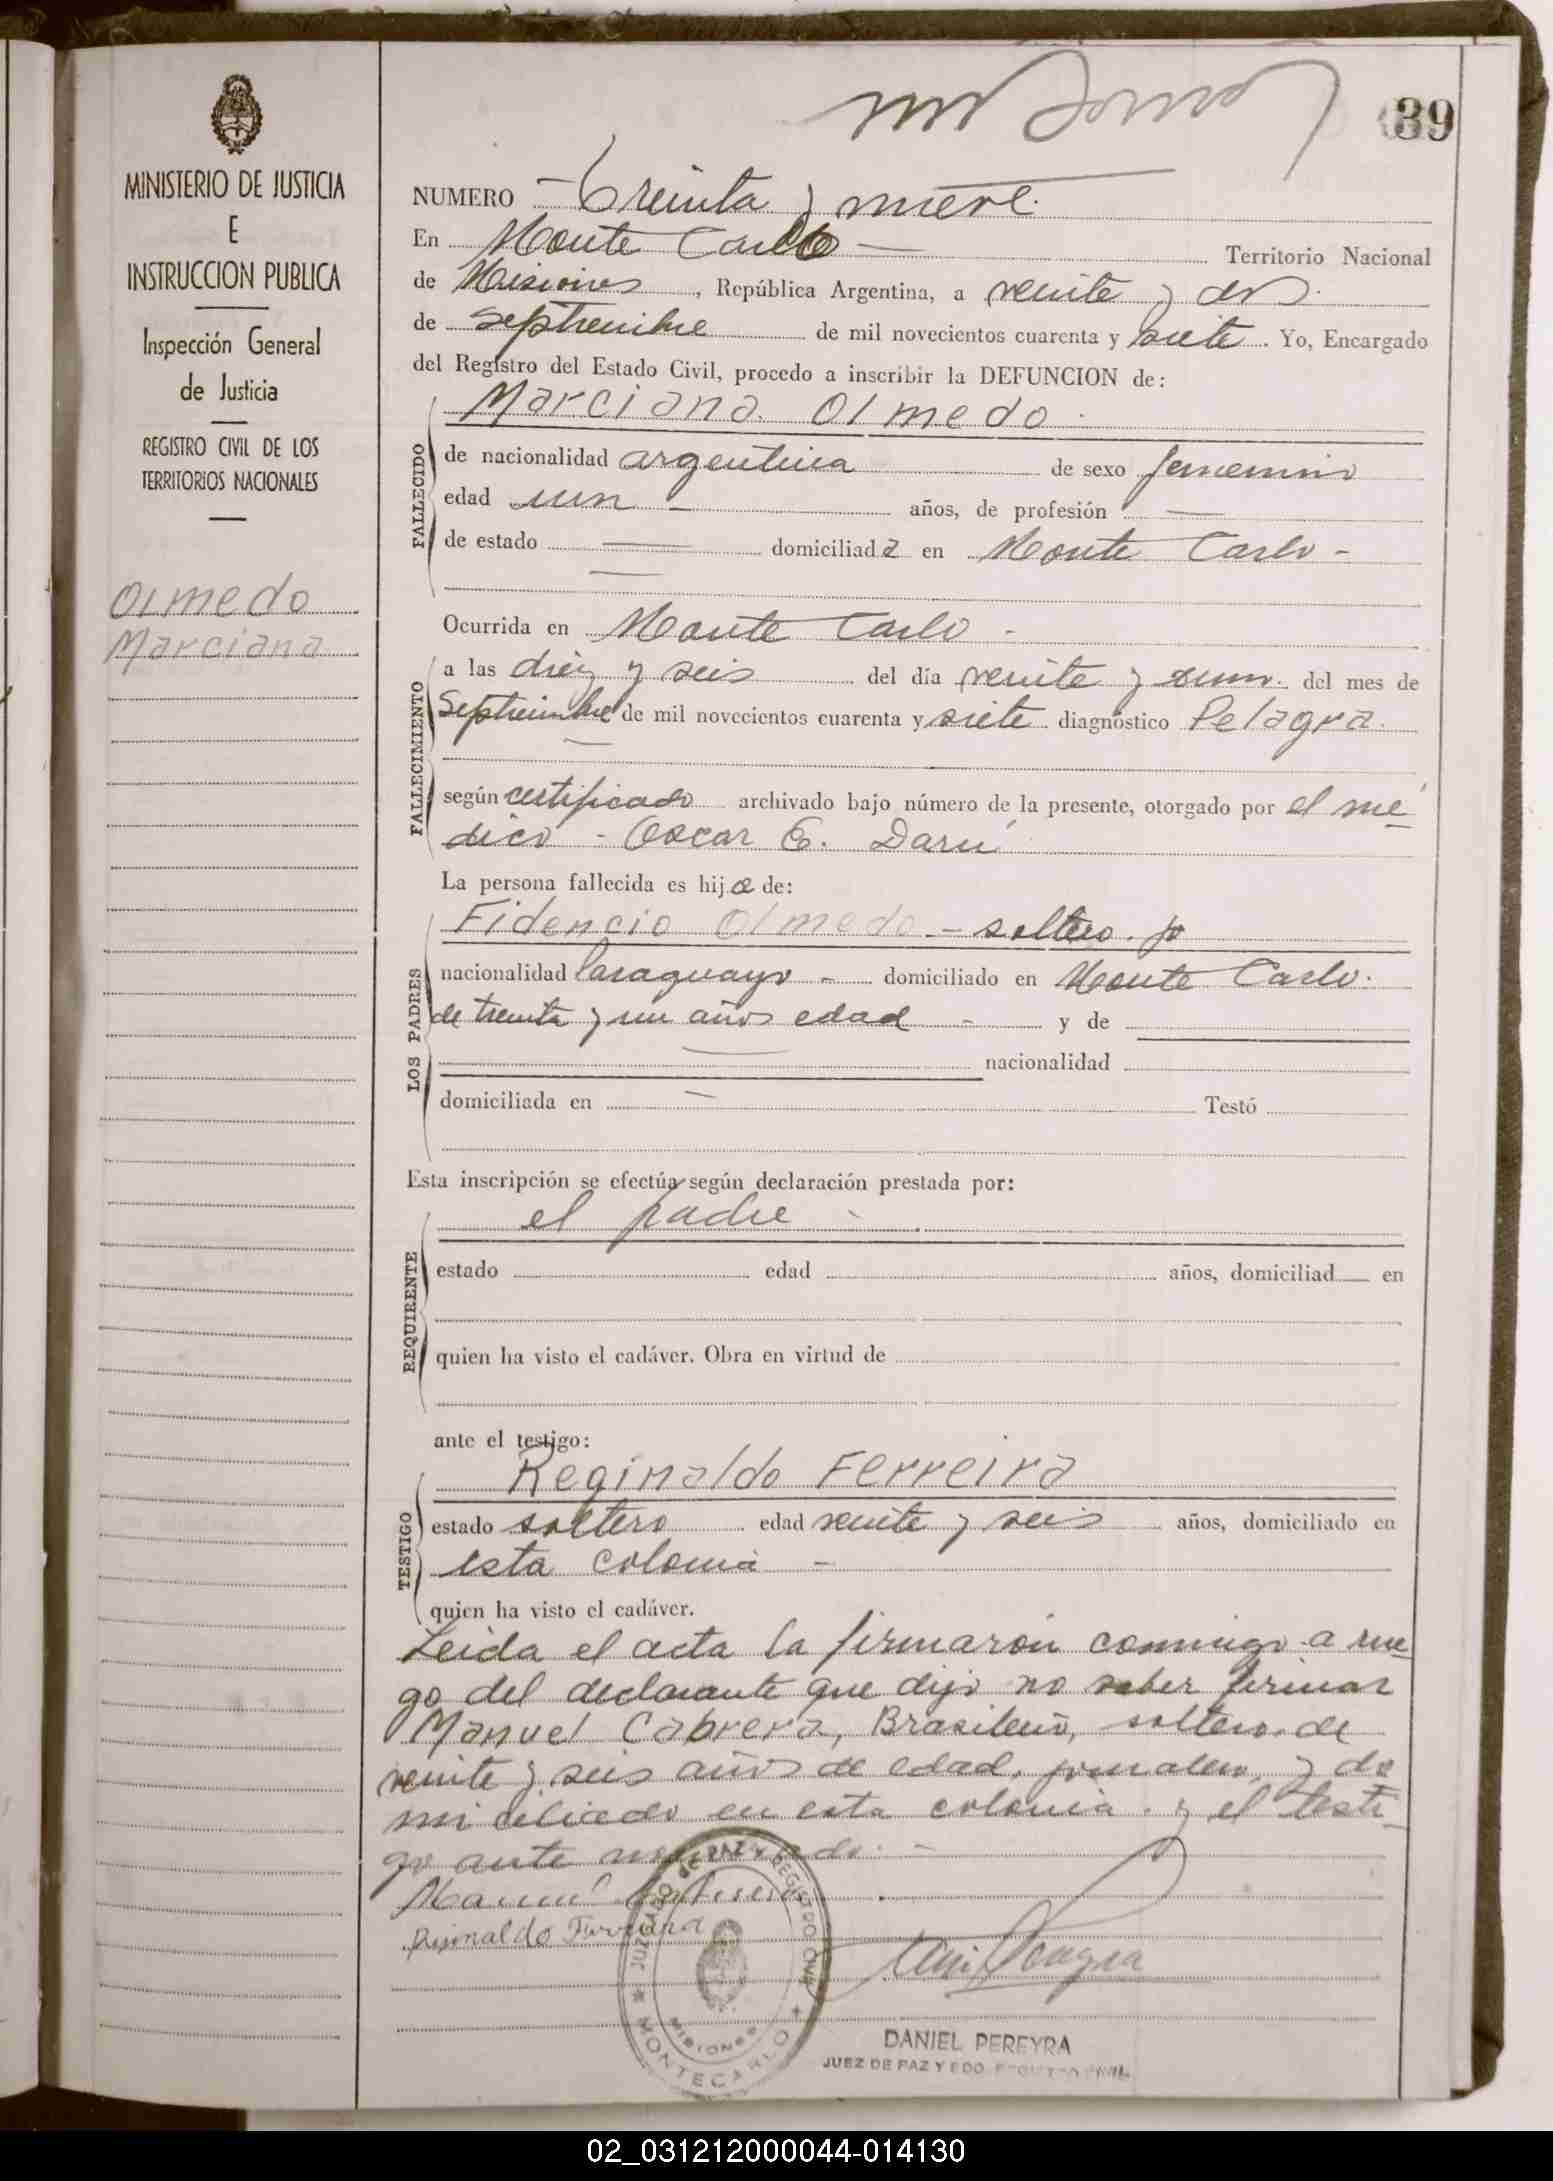 39
MINISTERIO DE JUSTICIA
E
INSTRUCCION PUBLICA
Inspección General
de Justicia
REGISTRO CIVIL DE LOS
TERRITORIOS NACIONALES
Olmedo
Marciana
NUMERO Treinta y nueve.
En Monte Carlo Territorio Nacional
de Misiones, República Argentina, a veinte y dos
de Septiembre de mil novecientos cuarenta y siete. Yo, Encargado
del Registro del Estado Civil, procedo a inscribir la DEFUNCION de:
Marciana Olmedo
FALLECIDO
de nacionalidad argentina de sexo femenino
edad un años, de profesión —
de estado — domiciliada en Monte Carlo -
Ocurrida en Monte Carlo -
FALLECIMIENTO
a las diez y seis del día veinte y uno. del mes de
Septiembre de mil novecientos cuarenta y siete diagnóstico Pelagra
según certificado archivado bajo número de la presente, otorgado por el mé-
dico - Oscar E. Darú
La persona fallecida es hija de:
LOS PADRES
Fidencio Olmedo - soltero.
nacionalidad Paraguayo - domiciliado en Monte Carlo.
de treinta y un años edad - y de
nacionalidad
domiciliada en — Testó
Esta inscripción se efectúa según declaración prestada por:
REQUIRENTE
el padre -
estado edad años, domiciliad en
quien ha visto el cadáver. Obra en virtud de
ante el testigo:
TESTIGO
Reginaldo Ferreira
estado soltero edad veinte y seis años, domiciliado en
esta colonia -
quien ha visto el cadáver.
Leida el acta la firmarón conmigo a rue-
go del declarante que dijo no saber firmar
Manuel Cabrera, Brasileño, soltero, de
veinte y seis años de edad, jornalero, y do
miciliado en esta colonia. y el testi-
go ante
Reginaldo Ferreira
JUZGADO DE PAZ Y REGISTRO CIVIL
MISIONES
MONTECARLO
DANIEL PEREYRA
JUEZ DE PAZ Y EDO. REGISTRO CIVIL
02_031212000044-014130